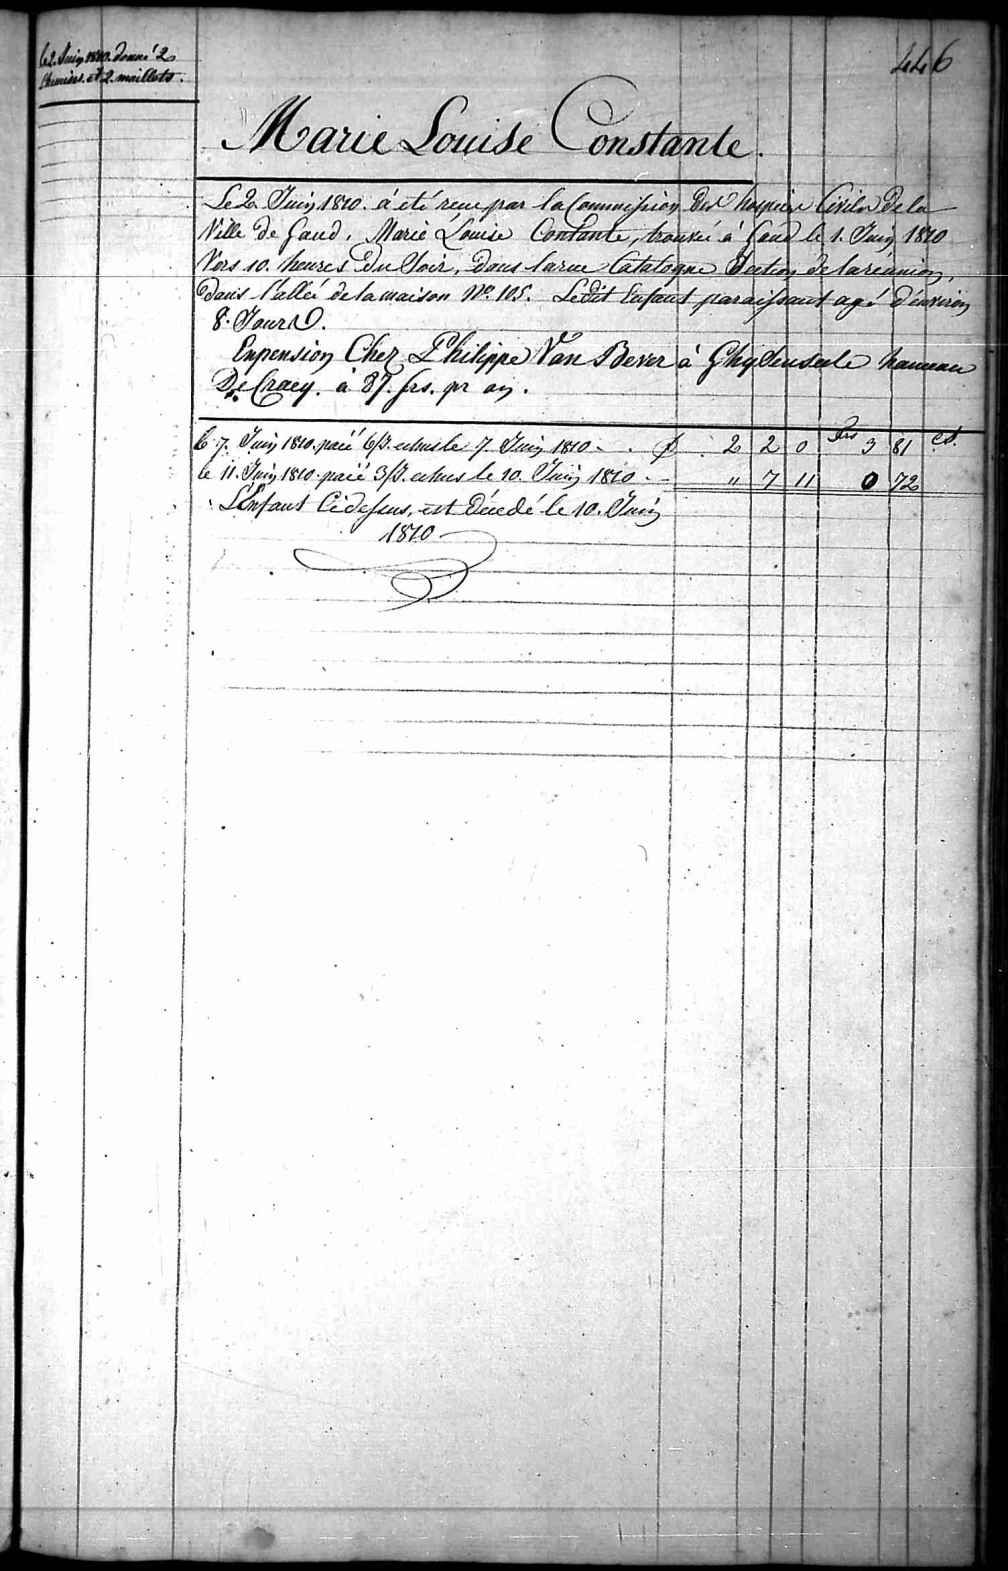 le 2. Juin 1810. donné 2
Chemises. et 2. maillots.
446
Marie Louise Constante.
Le 2. Juin 1810. à été reçu par la Commission des hospices Civils de la
Ville de Gand, Marie Louise Constante, trouvée à Gand le 1. Juin 1810
Vers 10. heures du Soir, dans la rue Catalogne Section de la réunion,
dans l'allée de la maison No. 105. Ledit Enfant paraissant agé d'environ
8. Jours.
En pension Chez Philippe Van Bever à hameau
De à 87. frs. pr an.
le 7. Juin 1810. paié echus le 7. Juin 1810 - . 2 2 0 frs 3 81 cs.
le 11. Juin 1810. paié echus le 10. Juin 1810 . - " 7 11 0 72
L'Enfant Cidessus, est Décedé le 10. Juin
1810